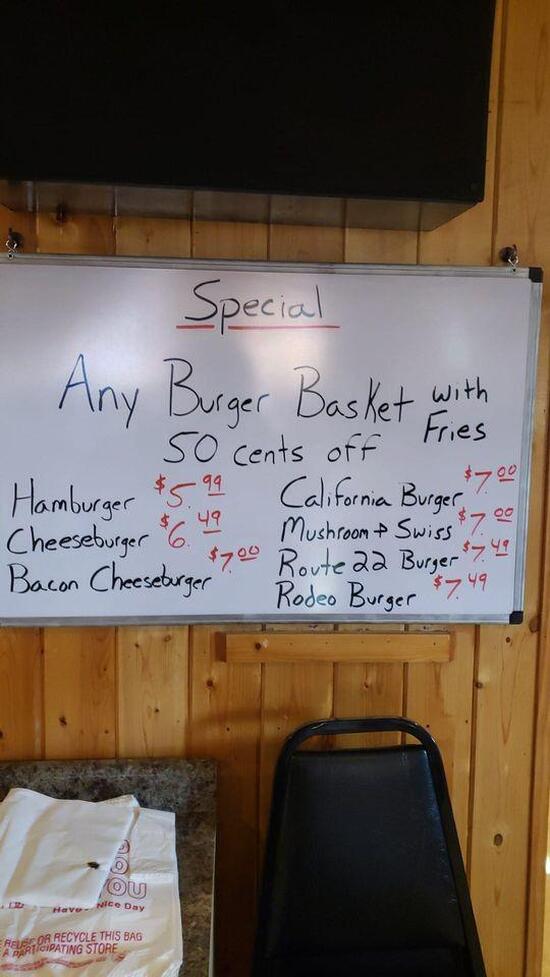 Special
Any Burger Basket with Fries
50 cents off
Hamburger $5.99
Cheeseburger $6.49
Bacon Cheeseburger $7.00
California Burger $7.00
Mushroom + Swiss $7.00
Route 22 Burger $7.49
Rodeo Burger $7.49
YOU
Have Nice Day
OR RECYCLE THIS BAG
A PARTICIPATING STORE